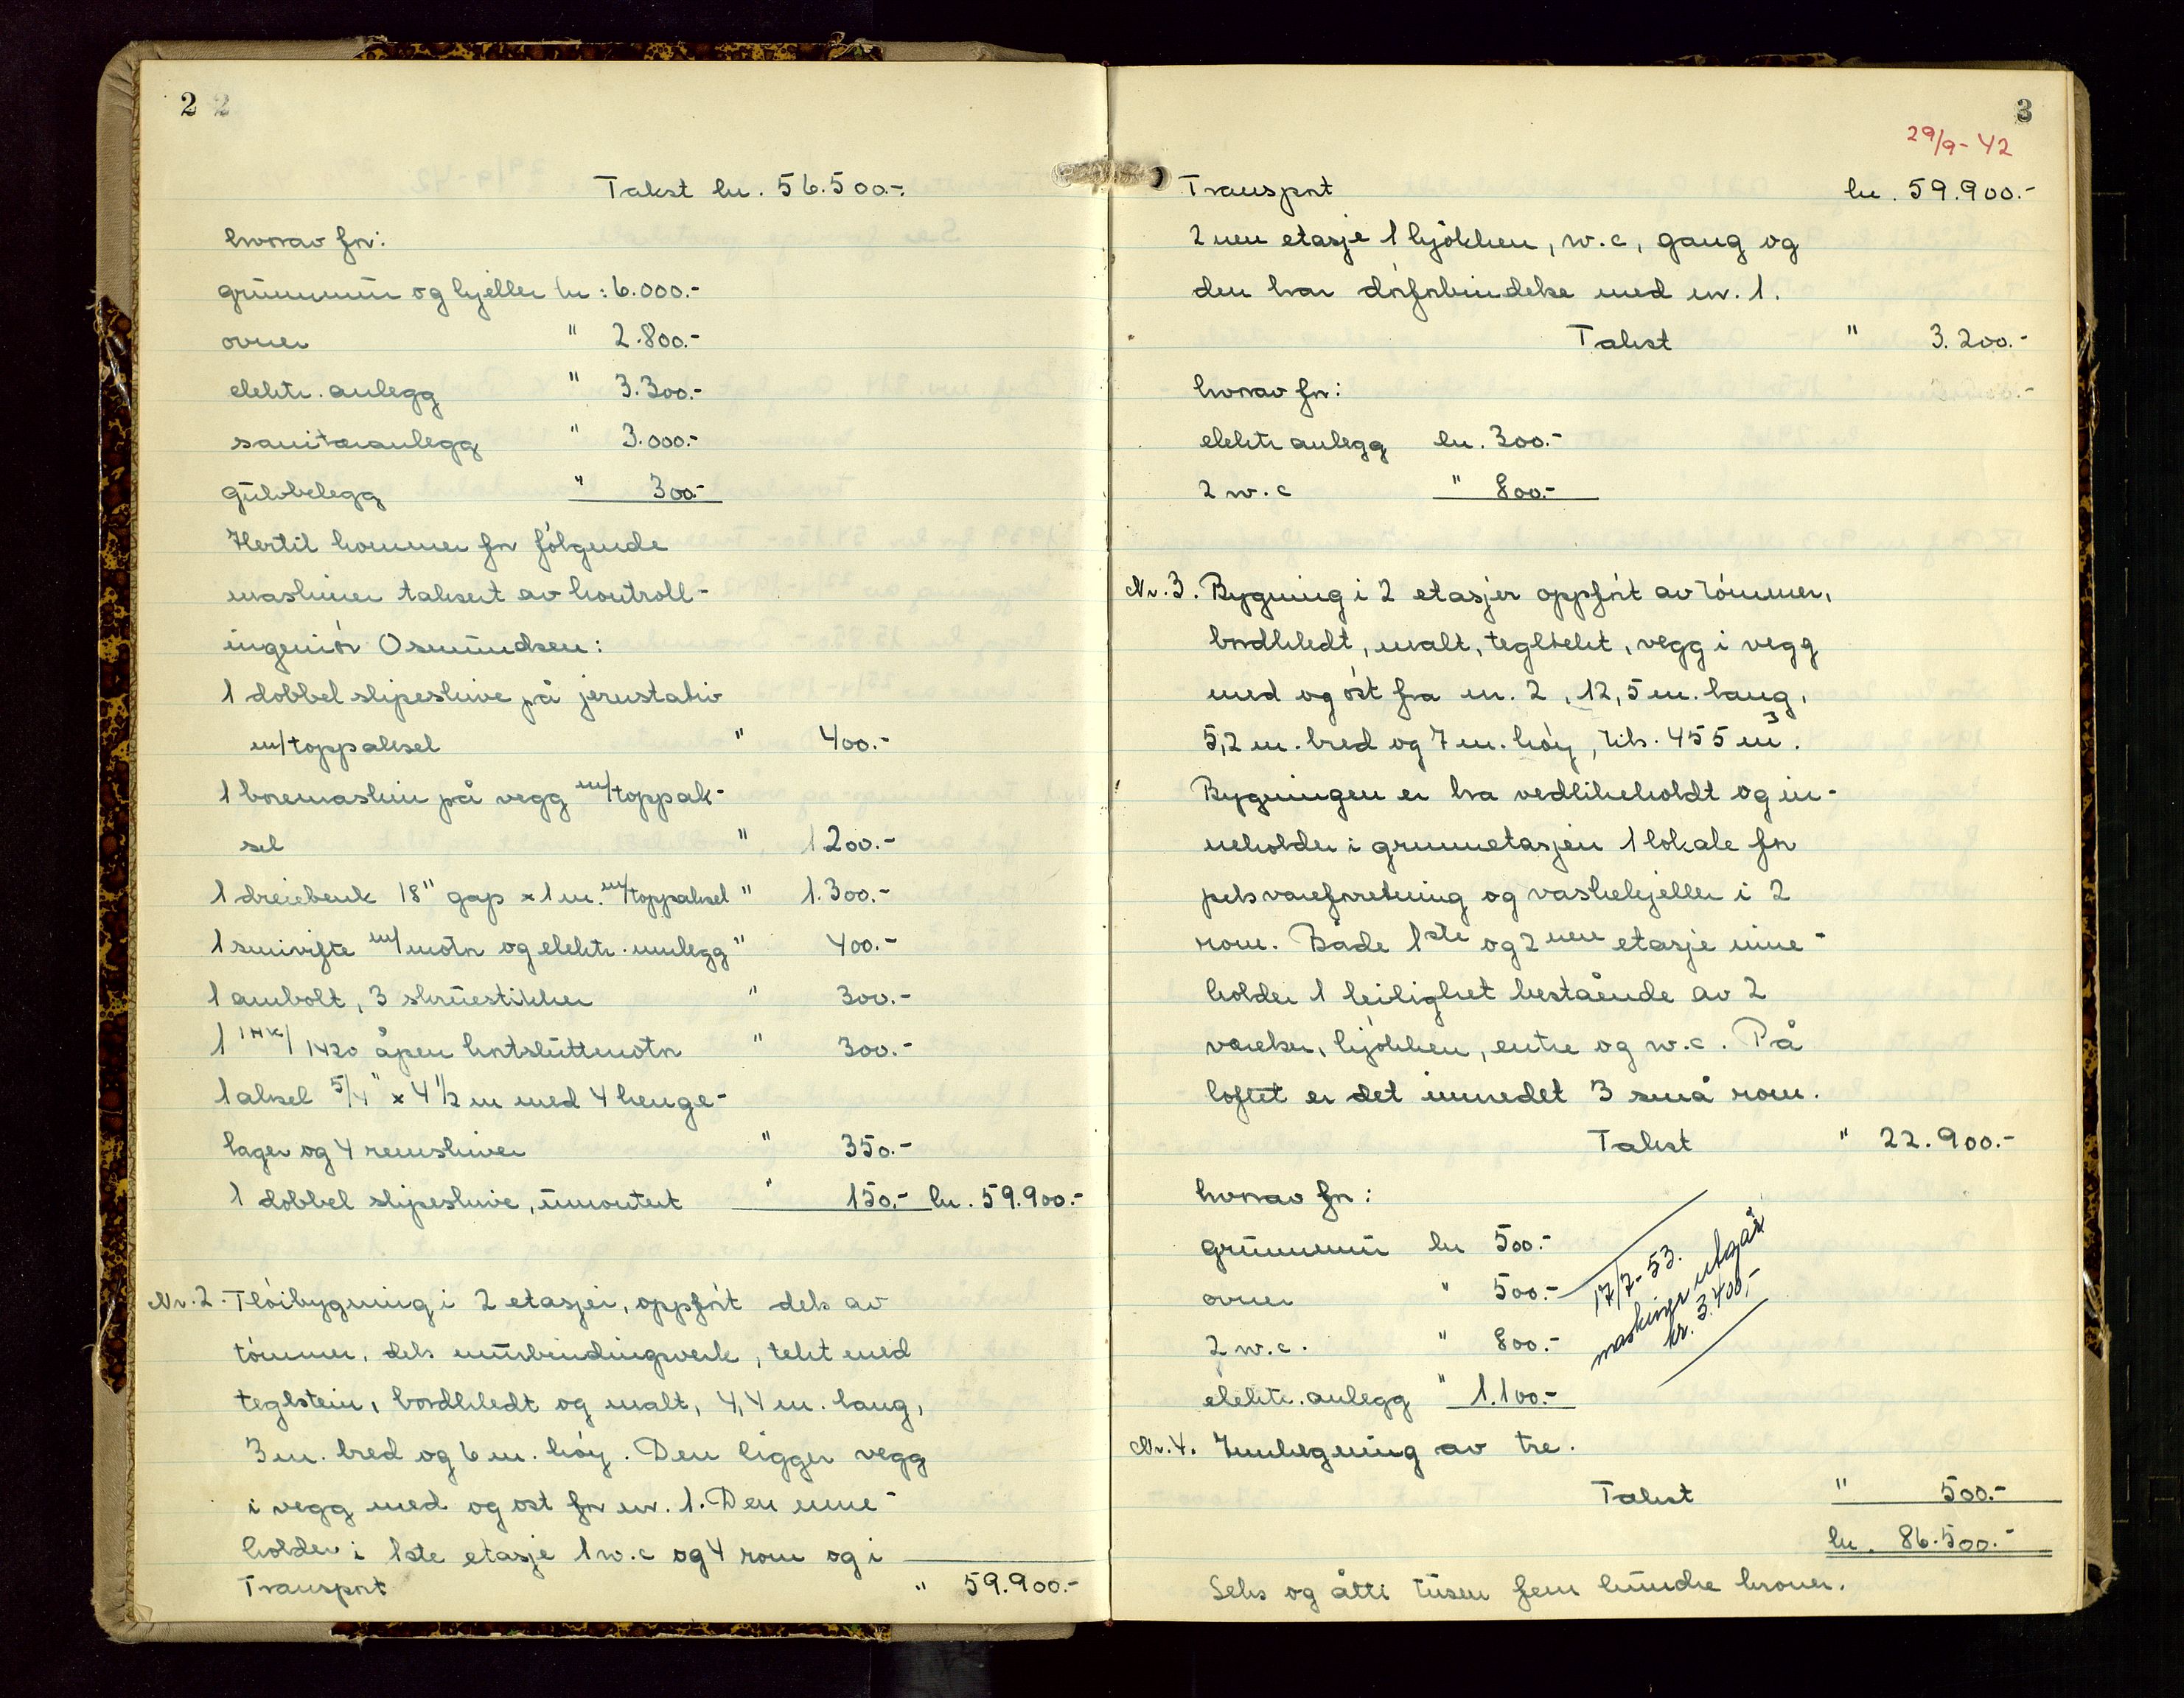 2 2
Takst kr. 56.500.-
hvorav for:
grunnmur og kjeller kr: 6.000.-
ovner " 2.800.-
elektr. anlegg " 3.300.-
sanitæranlegg " 3.000.-
gulvbelegg " 300.-
Hertil kommer for følgende
maskiner taksert av kontroll-
ingeniør Osmundsen:
1 dobbel slipeskive på jernstativ
m/toppaksel " 400.-
1 boremaskin på vegg m/toppak-
sel " 1200.-
1 dreiebenk 18" gap x 1 m. m/toppaksel " 1.300.-
1 smivifte m/motor og elektr. anlegg " 400.-
1 ambolt, 3 skruestikker " 300.-
1 1HK/1420 åpen kortsluttmotor " 300.-
1 aksel 5/4" x 4 1/2 m med 4 henge-
lager og 4 remskiver " 350.-
1 dobbel slipeskive, umontert " 150.- kr. 59.900.-
Nr. 2. Fløibygning i 2 etasjer, oppført dels av
tømmer, dels murbindingsverk, tekt med
teglstein, bordkledt og malt, 4,4 m. lang,
3 m. bred og 6 m. høy. Den ligger vegg
i vegg med og øst for nr. 1. Den inne-
holder i 1ste etasje 1 w.c og 4 rom og i
Transport " 59.900.-
3
29/9-42
Transport kr. 59.900.-
2nen etasje 1 kjøkken, w.c, gang og
den har dørforbindelse med nr. 1.
Takst " 3.200.-
hvorav for:
elektr anlegg kr. 300.-
2 w.c " 800.-
Nr. 3. Bygning i 2 etasjer oppført av tømmer,
bordkledt, malt, tegltekt, vegg i vegg
med og øst fra nr. 2, 12,5 m. lang,
5,2 m. bred og 7 m. høy, tils. 455 m³.
Bygningen er bra vedlikeholdt og in-
neholder i grunnetasjen 1 lokale for
pelsvareforretning og vaskekjeller i 2
rom. Både 1ste og 2nen etasje inne-
holder 1 leilighet bestående av 2
værelser, kjøkken, entre og w.c. På
loftet er det innredet 3 små rom.
Takst " 22.900.-
hvorav for:
grunnmur kr 500.-
ovner " 500.-
2 w.c. " 800.-
elektr. anlegg " 1.100.-
17/7-53.
maskiner utgår
kr. 3.400,-
Nr. 4. Innhegning av tre.
Takst " 500.-
kr. 86.500.-
Seks og åtti tusen fem hundre kroner.